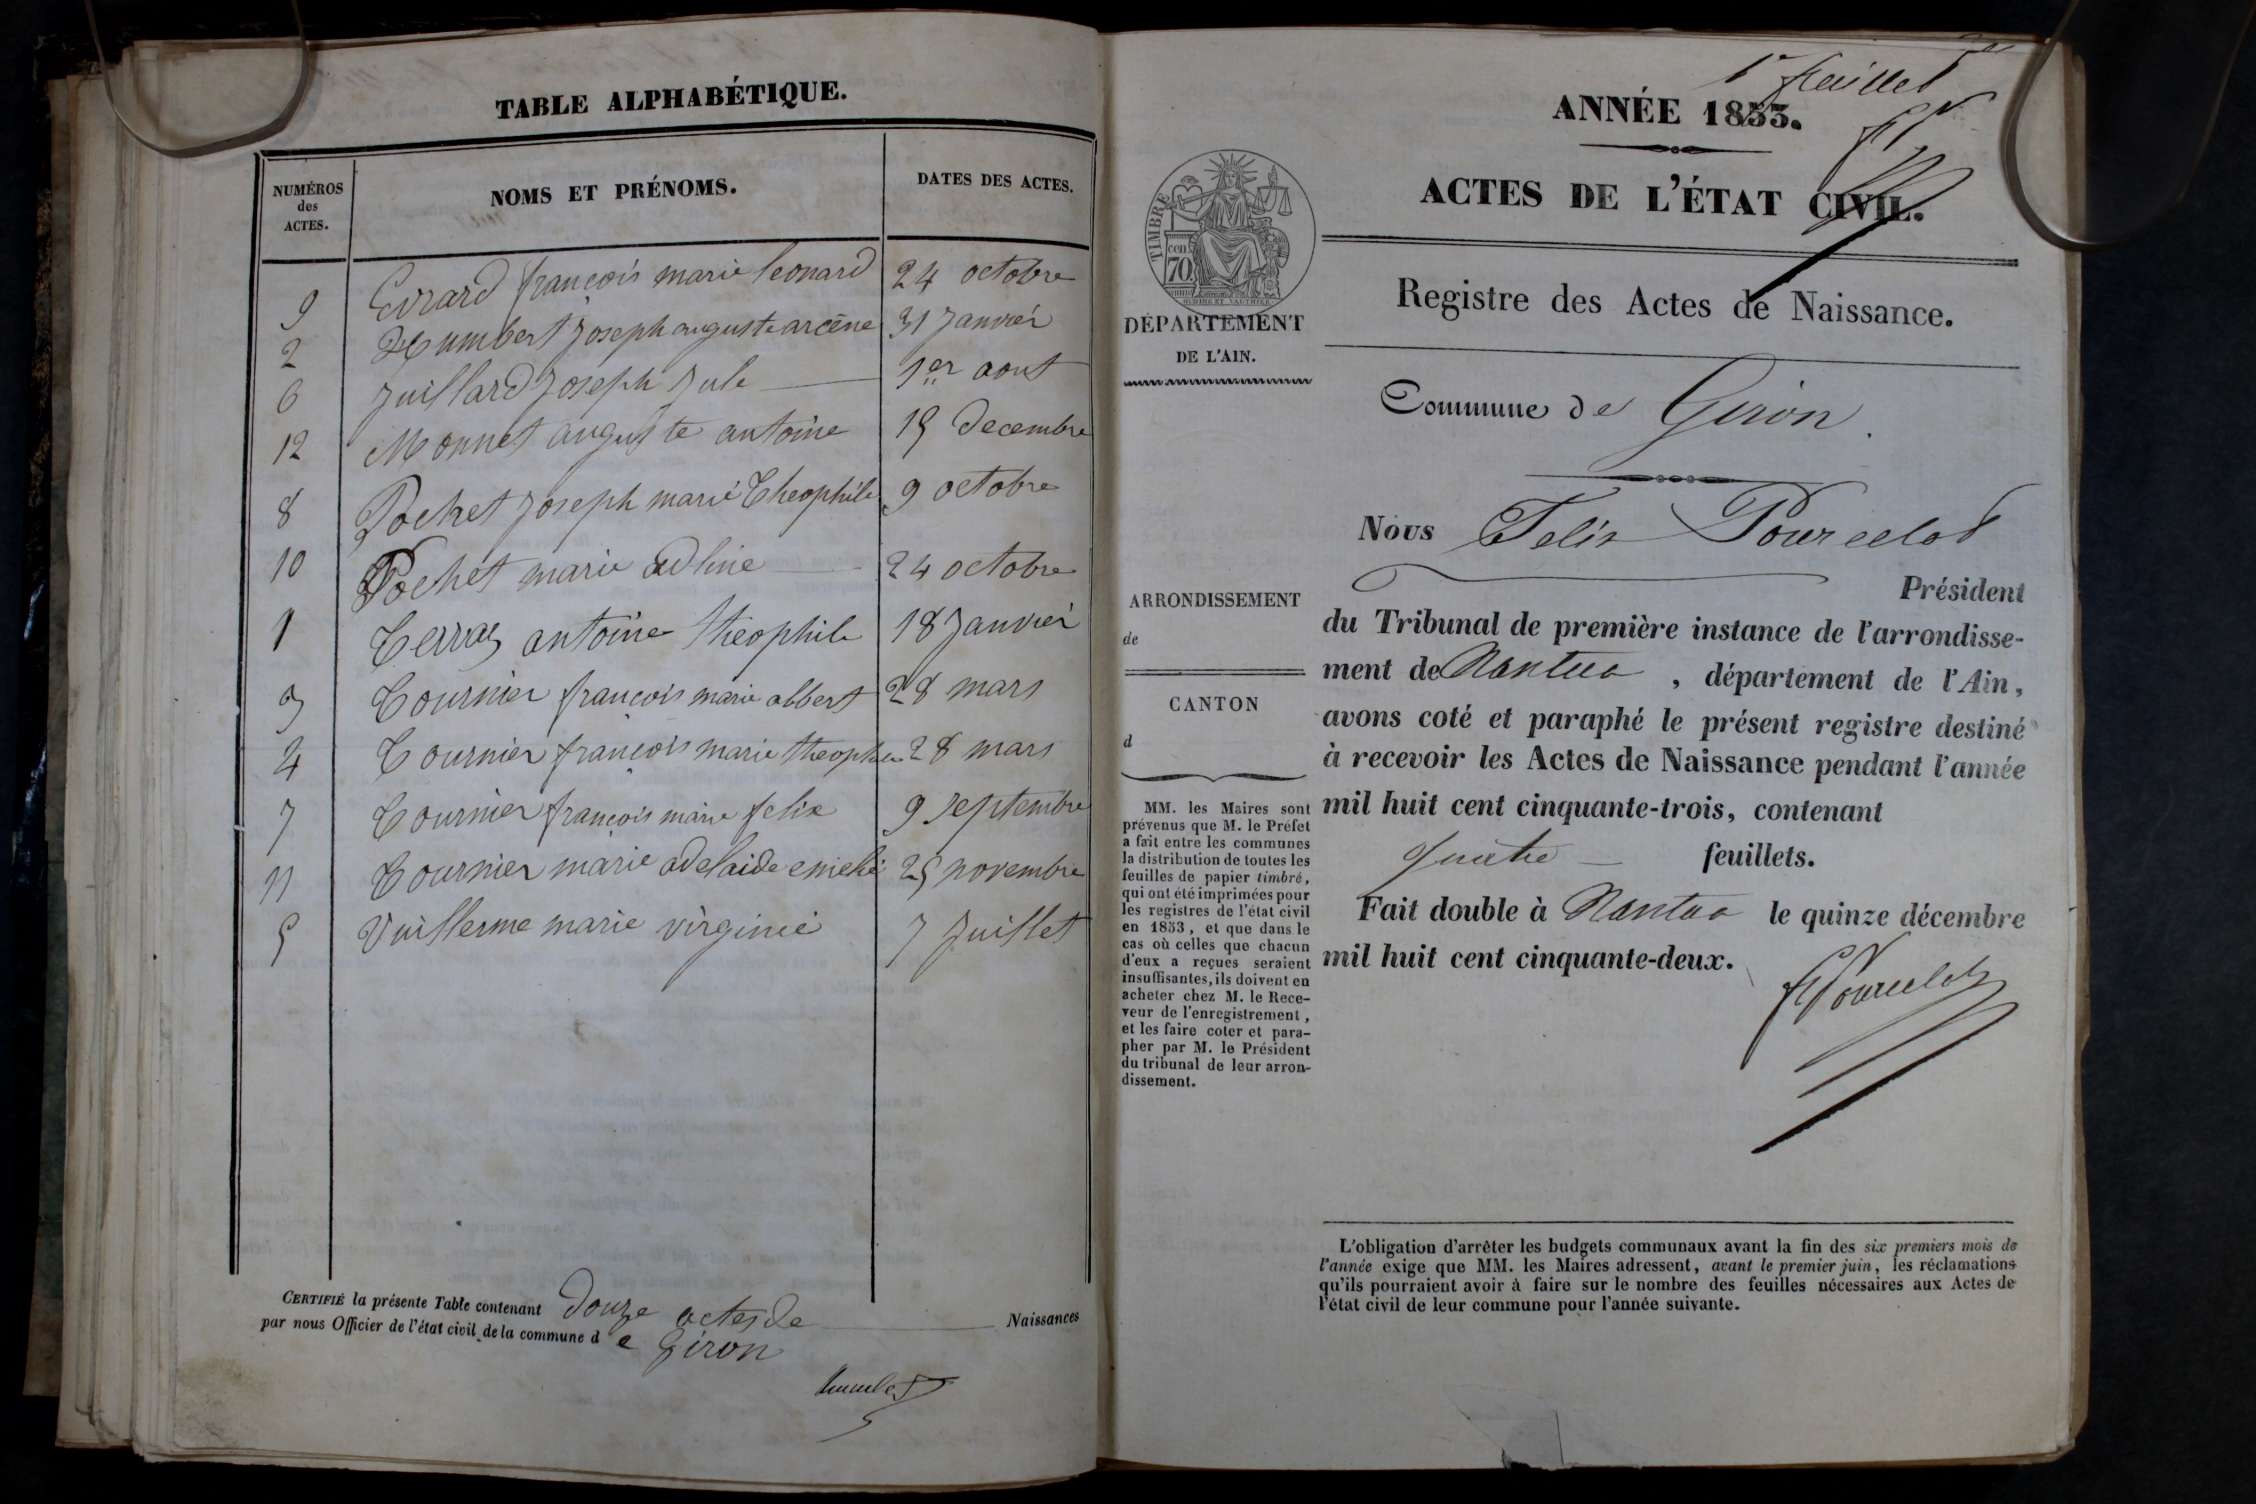 TABLE ALPHABÉTIQUE.
NUMÉROS des ACTES. NOMS ET PRÉNOMS. DATES DES ACTES.
9 Evrard françois marie leonard 24 octobre
2 Humbert joseph auguste arcène 31 janvier
6 Juillard Joseph Jule 1er aout
12 Monnet auguste antoine 15 decembre
8 Pochet joseph marie Theophile 9 octobre
10 Pochet marie adline 24 octobre
1 Terraz antoine theophile 18 Janvier
3 Tournier françois marie albert 28 mars
4 Tournier françois marie 28 mars
7 Tournier françois marie felix 9 septembre
11 Tournier marie adelaide 25 novembre
5 Vuillerme marie virginie 7 Juillet
CERTIFIÉ la présente Table contenant douze actes de Naissances
par nous Officier de l'état civil de la commune de Giron
Humbert
1er feuillet
ANNÉE 1853.
ACTES DE L'ÉTAT CIVIL.
TIMBRE
70 cen
Registre des Actes de Naissance.
DÉPARTEMENT
DE L'AIN.
Commune de Giron.
Nous Felix Pourcelot
Président
du Tribunal de première instance de l'arrondisse-
ment de Nantua, département de l'Ain,
avons coté et paraphé le présent registre destiné
à recevoir les Actes de Naissance pendant l'année
mil huit cent cinquante-trois, contenant
quatre feuillets.
Fait double à Nantua le quinze décembre
mil huit cent cinquante-deux.
FPourcelot
ARRONDISSEMENT
de
CANTON
d
MM. les Maires sont
prévenus que M. le Préfet
a fait entre les communes
la distribution de toutes les
feuilles de papier timbré,
qui ont été imprimées pour
les registres de l'état civil
en 1853, et que dans le
cas où celles que chacun
d'eux a reçues seraient
insuffisantes, ils doivent en
acheter chez M. le Rece-
veur de l'enregistrement,
et les faire coter et para-
pher par M. le Président
du tribunal de leur arron-
dissement.
L'obligation d'arrêter les budgets communaux avant la fin des six premiers mois de
l'année exige que MM. les Maires adressent, avant le premier juin, les réclamations
qu'ils pourraient avoir à faire sur le nombre des feuilles nécessaires aux Actes de
l'état civil de leur commune pour l'année suivante.